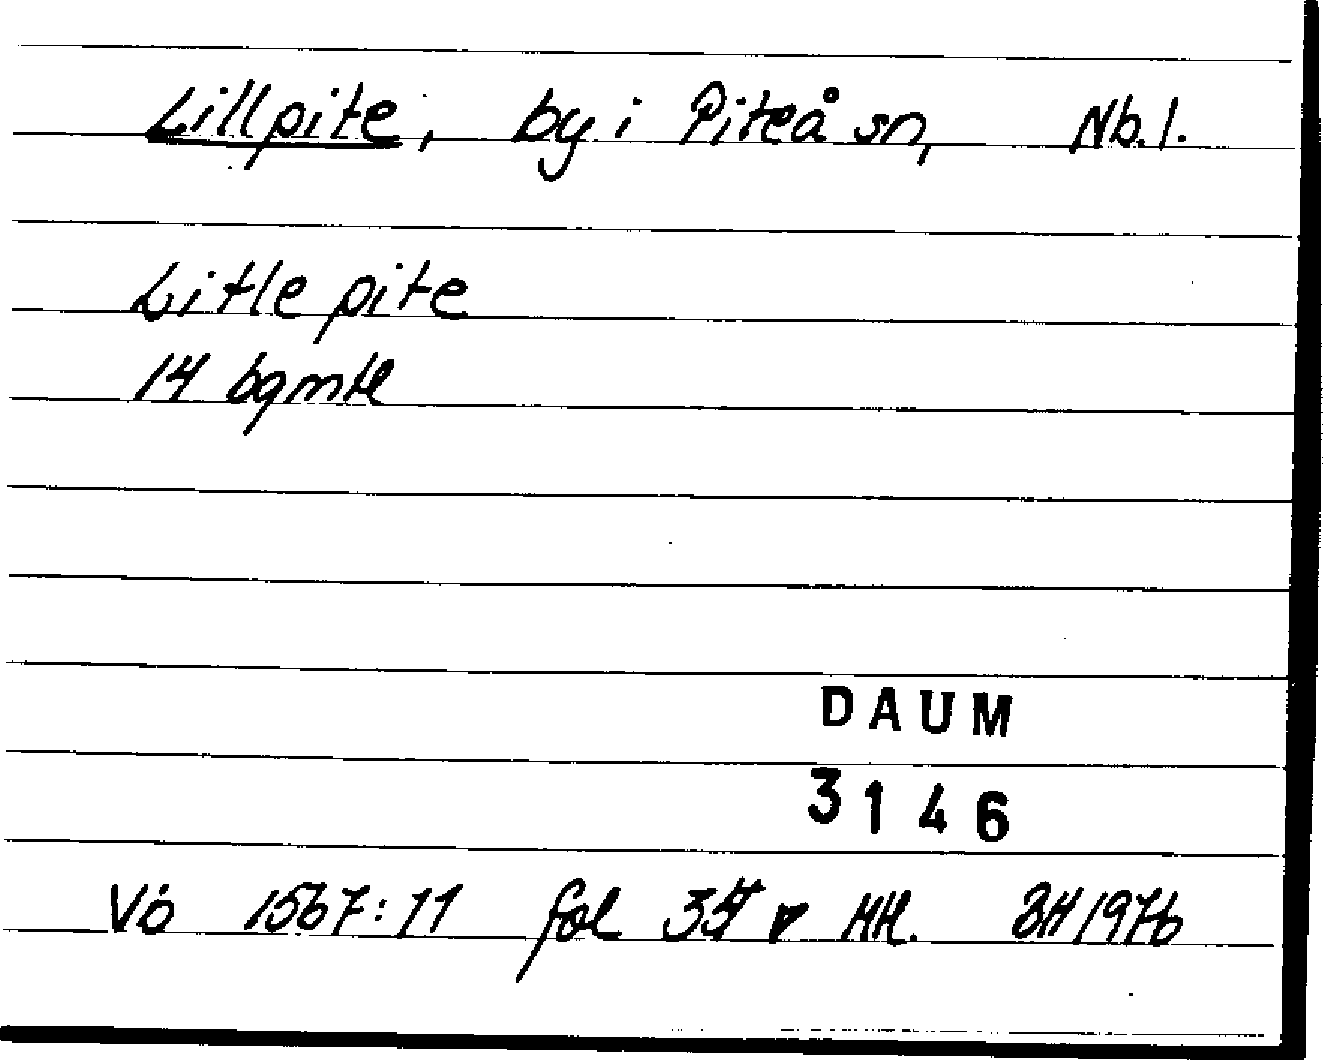 Lillpite, by i Piteå sn, Nb.l.
Litle pite
14 bgmtl
DAUM
3146
Vb 1567:11 fol 35 v HH. BH 1976